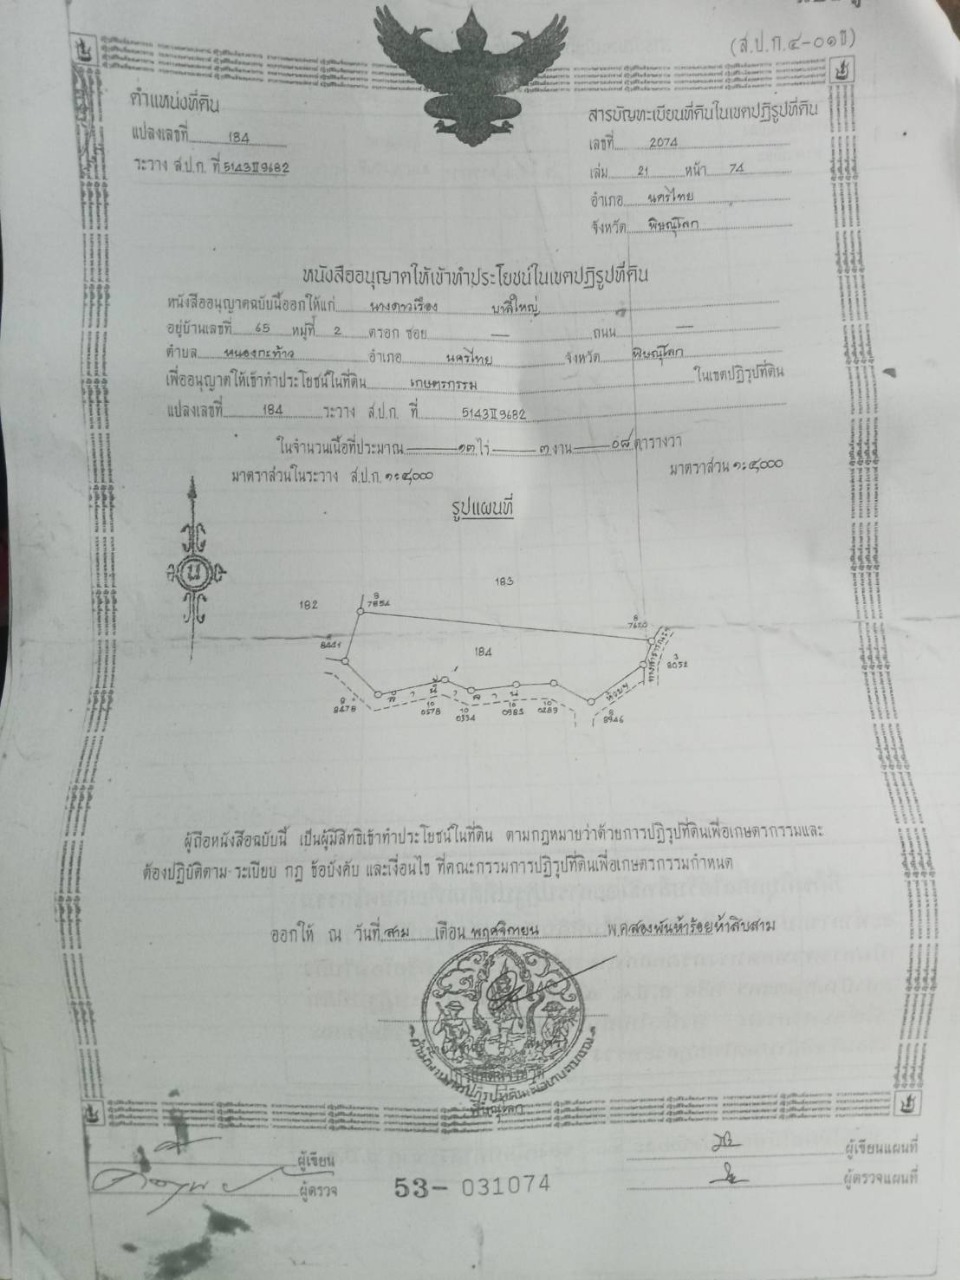 (ส.ป.ก.๔-๐๑ข)
ตำแหน่งที่ดิน
แปลงเลขที่ 184
ระวาง ส.ป.ก. ที่ 5143II9682
สารบัญทะเบียนที่ดินในเขตปฏิรูปที่ดิน
เลขที่ 2074
เล่ม 21 หน้า 74
อำเภอ นครไทย
จังหวัด พิษณุโลก
หนังสืออนุญาตให้เข้าทำประโยชน์ในเขตปฏิรูปที่ดิน
หนังสืออนุญาตฉบับนี้ออกให้แก่ นางดาวเรือง
อยู่บ้านเลขที่ 65 หมู่ที่ 2 ตรอก ซอย — ถนน —
ตำบล หนองกะท้าว อำเภอ นครไทย จังหวัด พิษณุโลก
เพื่ออนุญาตให้เข้าทำประโยชน์ในที่ดิน เกษตรกรรม ในเขตปฏิรูปที่ดิน
แปลงเลขที่ 184 ระวาง ส.ป.ก. ที่ 5143II9682
ในจำนวนเนื้อที่ประมาณ ๑๓ ไร่ ๓ งาน ๐๘ ตารางวา
มาตราส่วนในระวาง ส.ป.ก. ๑:๔,๐๐๐ มาตราส่วน ๑:๔,๐๐๐
รูปแผนที่
น
183
182
8
7854
8
184
3
8052
ลำน้ำคาน
ห้วยฯ
9
8478
10
0578
10
0334
10
0983
10
0289
8
8946
ผู้ถือหนังสือฉบับนี้ เป็นผู้มีสิทธิเข้าทำประโยชน์ในที่ดิน ตามกฎหมายว่าด้วยการปฏิรูปที่ดินเพื่อเกษตรกรรมและ
ต้องปฏิบัติตาม ระเบียบ กฎ ข้อบังคับ และเงื่อนไข ที่คณะกรรมการปฏิรูปที่ดินเพื่อเกษตรกรรมกำหนด
ออกให้ ณ วันที่ สาม เดือน พฤศจิกายน พ.ศ.สองพันห้าร้อยห้าสิบสาม
พิษณุโลก
ผู้เขียน
ผู้ตรวจ
53- 031074
ผู้เขียนแผนที่
ผู้ตรวจแผนที่